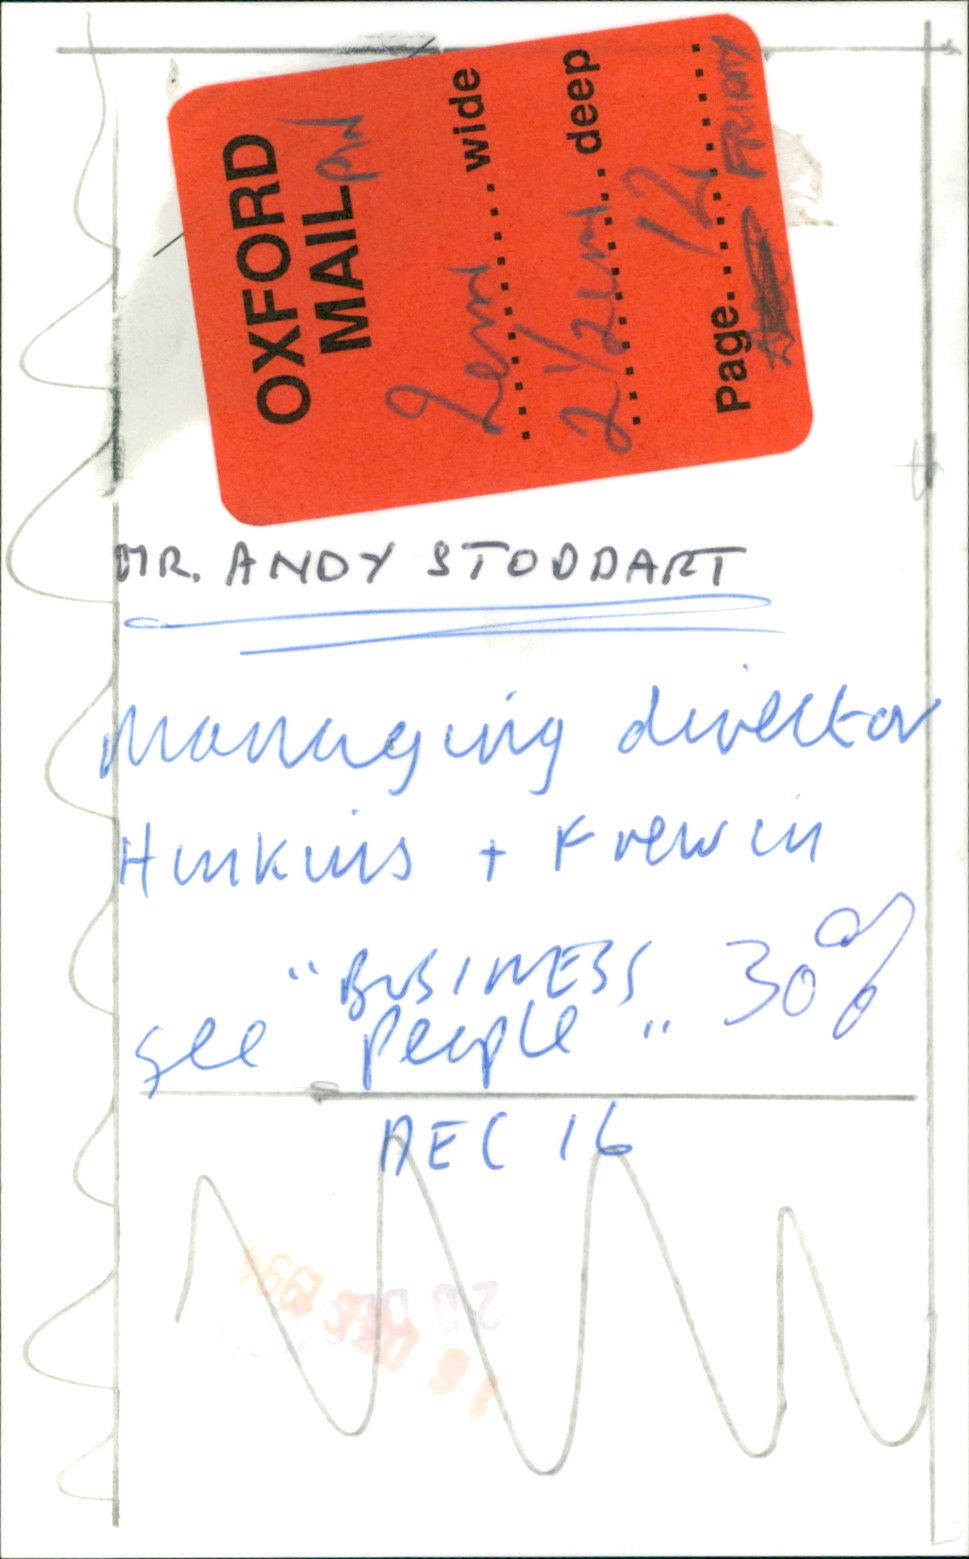 OXFORD
MAIL
2cm wide
2 1/2cm deep
Page 12
FRIDAY
MR. ANDY STODDART
Managing director
Hinkins + Frewin
"BUSINESS 30%
see People"
DEC 16
20 DEC
16 DEC 1994